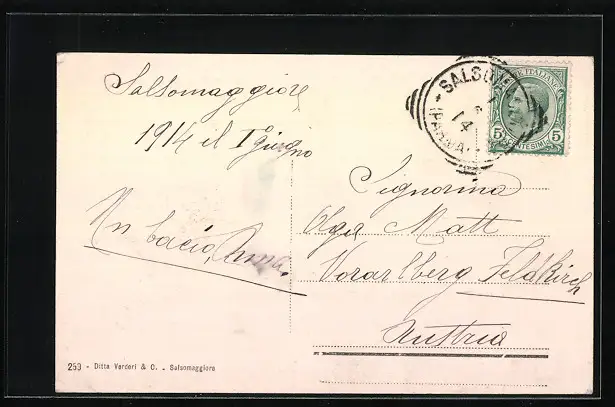 Salsomaggiore
1914 il I giugno
Un bacio,
SALSOMA
14
(PARMA)
POSTE ITALIANE
5 CENTESIMI 5
Signorina
Olga Matt
Vorarlberg Feldkirch
Austria
253 - Ditta Verderi & C. - Salsomaggiore